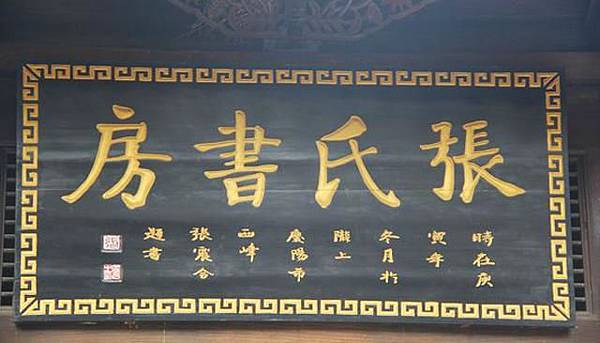 張氏書房
時在庚
寅年
冬月於
隴上
慶陽市
西峰
張震合
題書